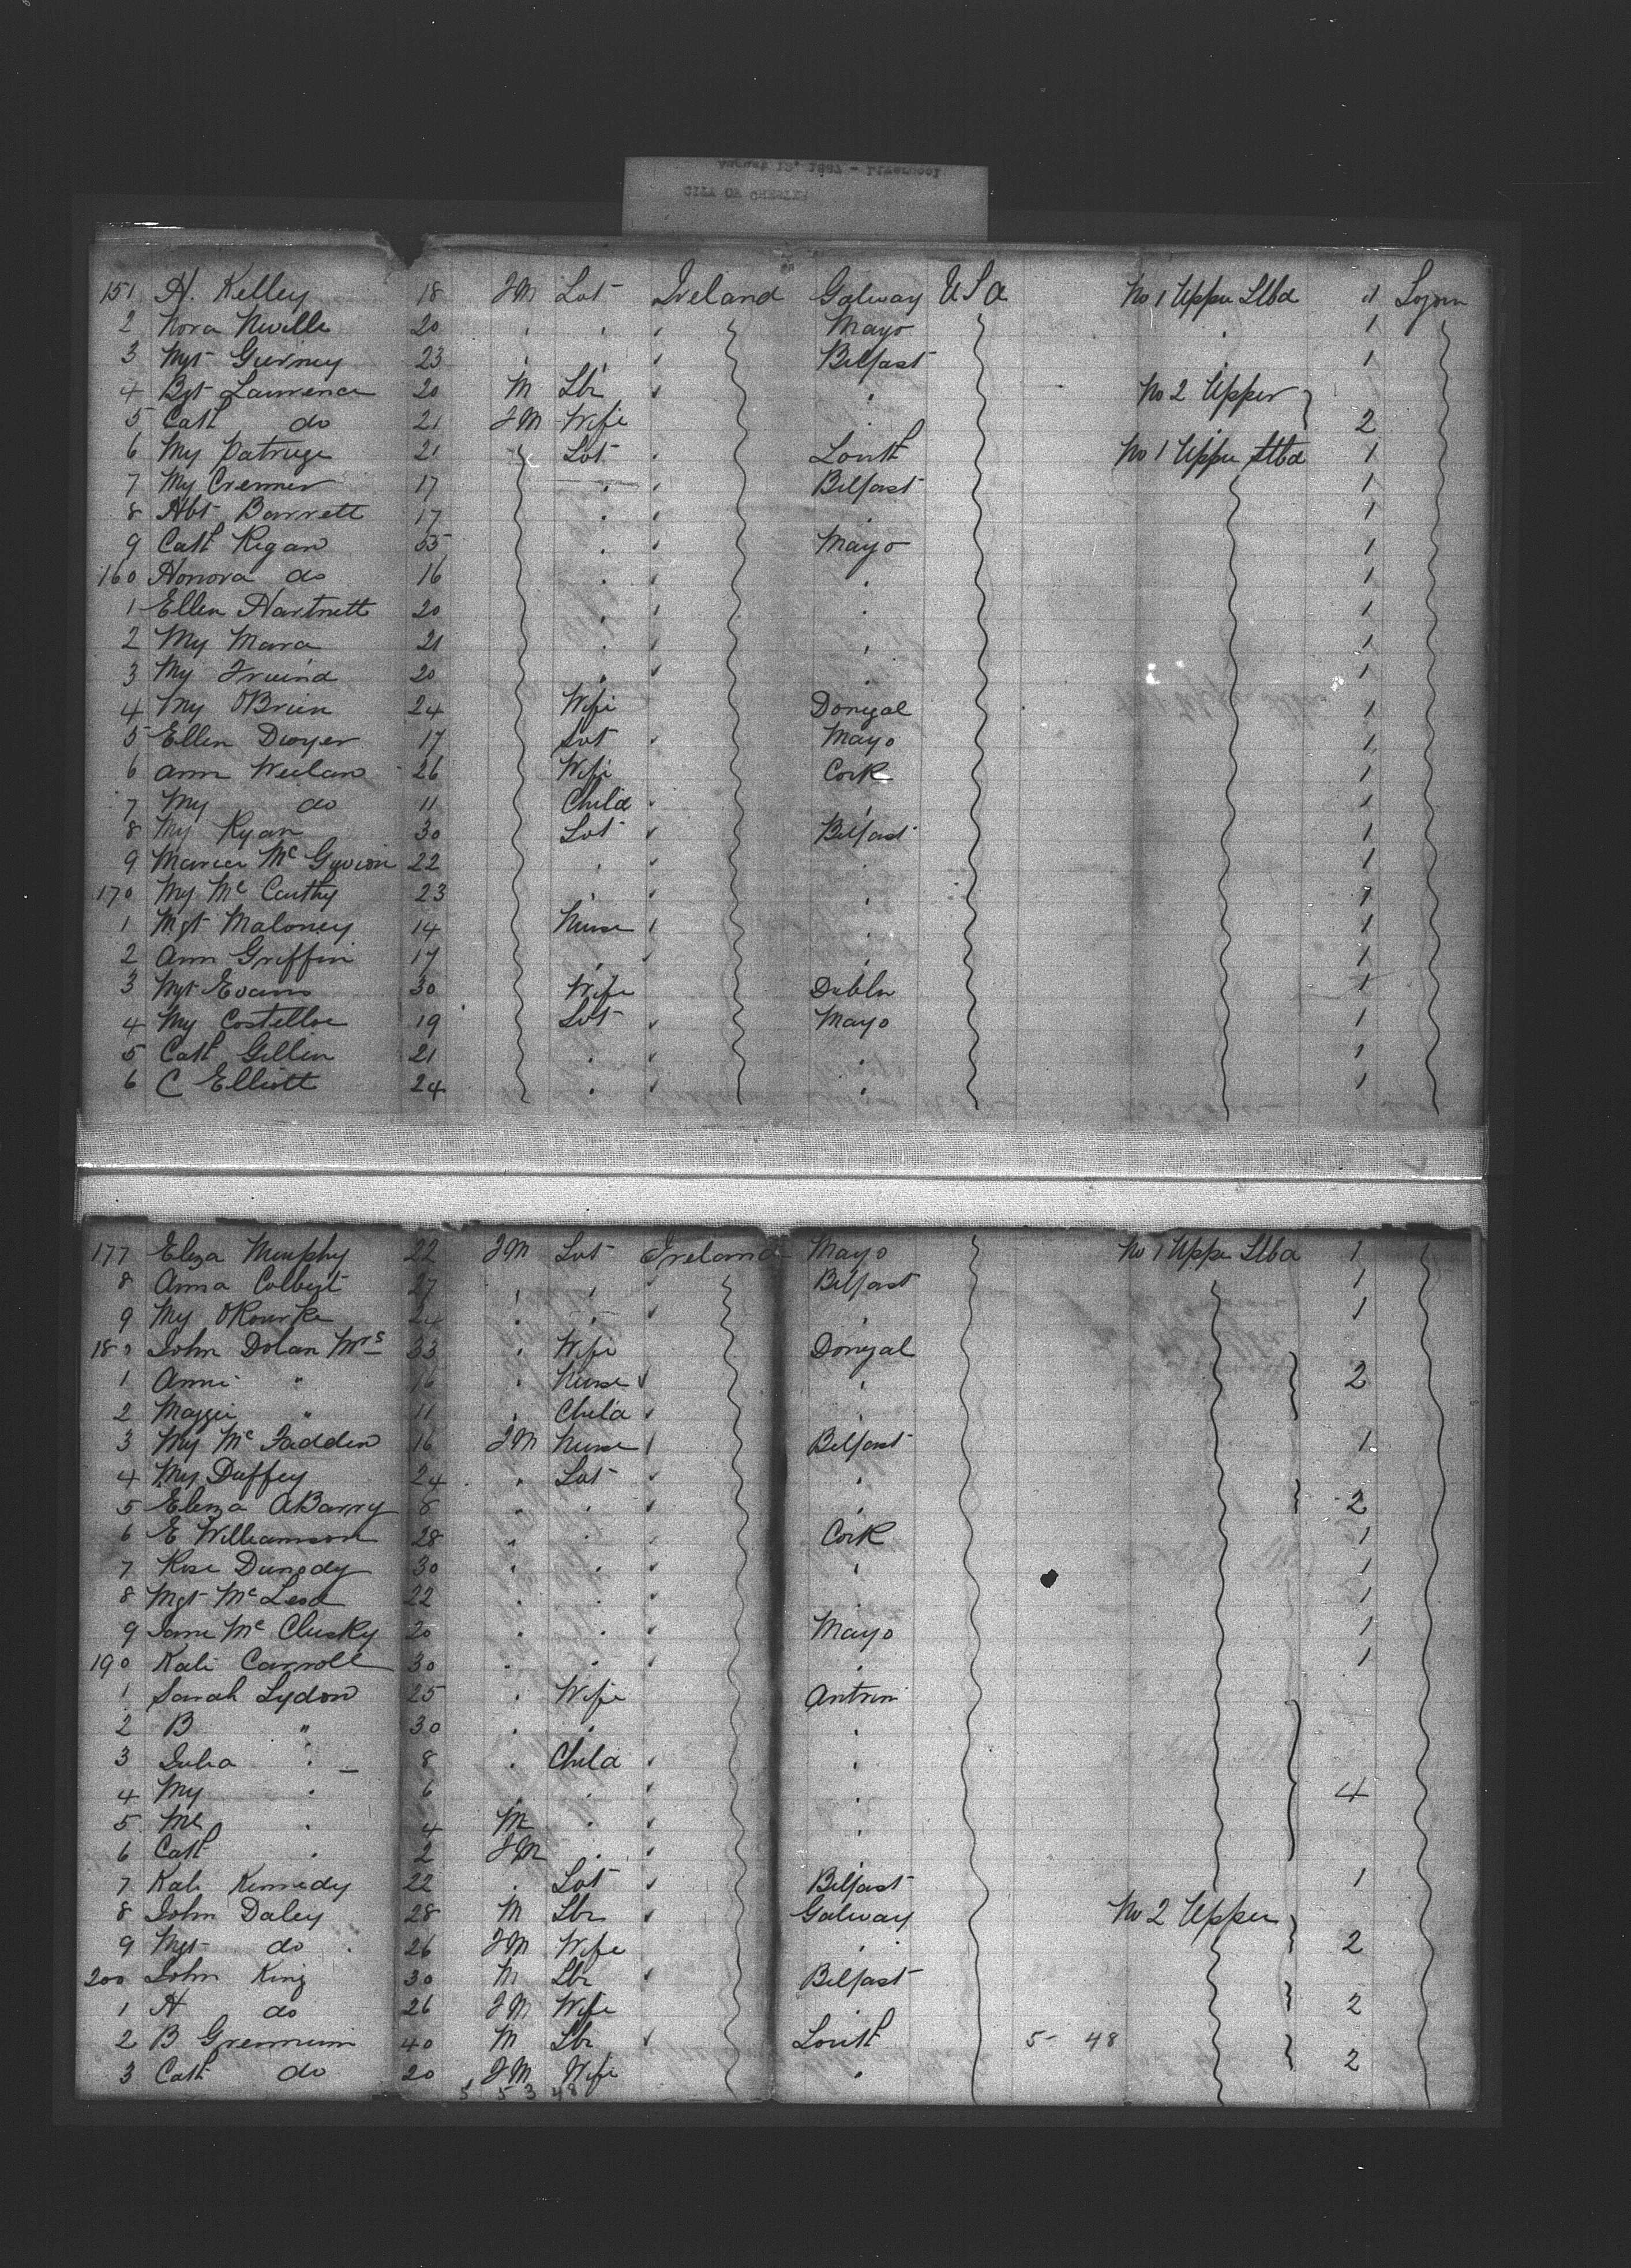 August 12, 1887 - Liverpool
CITY OF CHESTER
151 H. Kelley 18 FM Lot Ireland Galway USA No 1 Upper Stbd 1 Sojorn
2 Nora Neville 20 " " " Mayo " 1
3 Mgt Guerney 23 " " " Belfast " 1
4 Bgt Lawrence 20 M Lbr " " No 2 Upper
5 Cath do 21 FM Wife " 2
6 My Patruge 21 " Lot " Louth No 1 Upper Stbd 1
7 My Cremer 17 " " Belfast 1
8 Hbt Barrett 17 " " " 1
9 Cath Regan 65 " " Mayo 1
160 Honora do 16 " " " 1
1 Ellen Hartnett 20 " " " 1
2 My Mara 21 " " " 1
3 My Fruind 20 " " " 1
4 My OBrien 24 Wife Donegal 1
5 Ellen Dwyer 17 Lot " Mayo 1
6 Ann Weilan 26 Wife Cork 1
7 My do 11 Child " " 1
8 My Ryan 30 Lot " Belfast 1
9 22 " " " 1
170 My Mc Carthy 23 " " " 1
1 Mgt Maloney 14 Nurse " " 1
2 Ann Griffin 17 " " " 1
3 Mgt Evans 30 Wife Dublin 1
4 My Costelloe 19 Lot " Mayo 1
5 Cath Gillin 21 " " " 1
6 C Elliott 24 " " " 1
177 Eliza Murphy 22 FM Lot Ireland Mayo No 1 Upper Stbd 1
8 Anna Colbert 27 " " " Belfast 1
9 My ORourke 24 " " " " 1
180 John Dolan Mrs 33 " Wife Donegal
1 Annie " 16 " Nurse " " 2
2 Maggie " 11 " Child " "
3 My Mc Fadden 16 FM Nurse " Belfast 1
4 My Duffey 24 " Lot " "
5 Eliza ABarry 8 " " " " 2
6 E Williamson 28 " " " Cork 1
7 Rose Dunody 30 " " " " 1
8 Mgt Mc Leod 22 " " " " 1
9 Jane Mc Clusky 20 " " " Mayo 1
190 Kate Carroll 30 " " " " 1
1 Sarah Lydon 25 " Wife Antrim
2 B " 30 " " "
3 Julia " 8 " Child " "
4 My " 6 " " " " 4
5 Ml " 4 M " " "
6 Cath " 2 FM " " "
7 Kate Kennedy 22 " Lot " Belfast 1
8 John Daley 28 M Lbr " Galway No 2 Upper
9 Mgt do 26 FM Wife " 2
200 John King 30 M Lbr " Belfast
1 H do 26 FM Wife " 2
2 B 40 M Lbr " Louth 5- 48
3 Cath do 20 FM Wife " 2
5 5 3 48